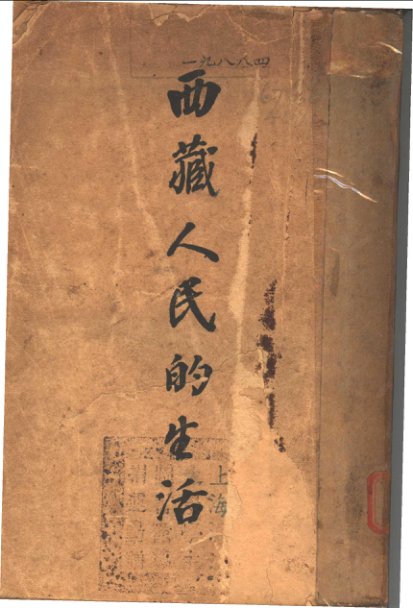 一九八八四
西藏人民的生活
上海